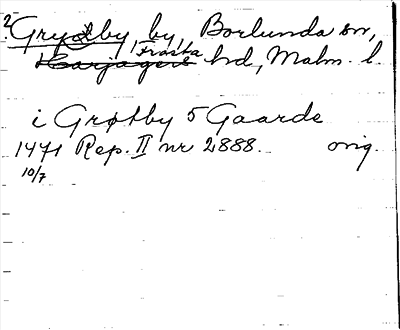 ? Grydby by, Borlunda sn,
Frosta
Harjagers hd, Malm. l.
i Grøtby 5 Gaarde
1471 Rep. II nr 2888. orig.
10/7